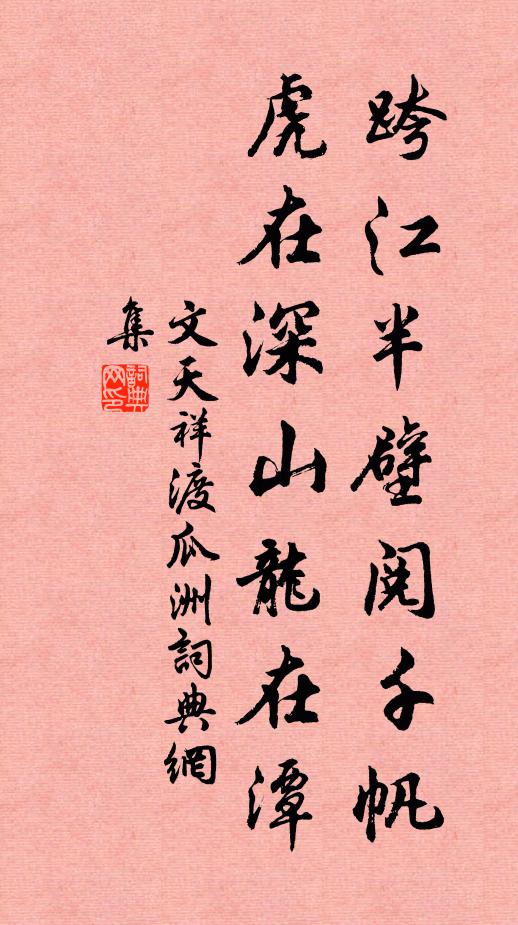 跨江半壁閱千帆
虎在深山龍在潭
文天祥渡瓜洲詞典網
集
詞典網印